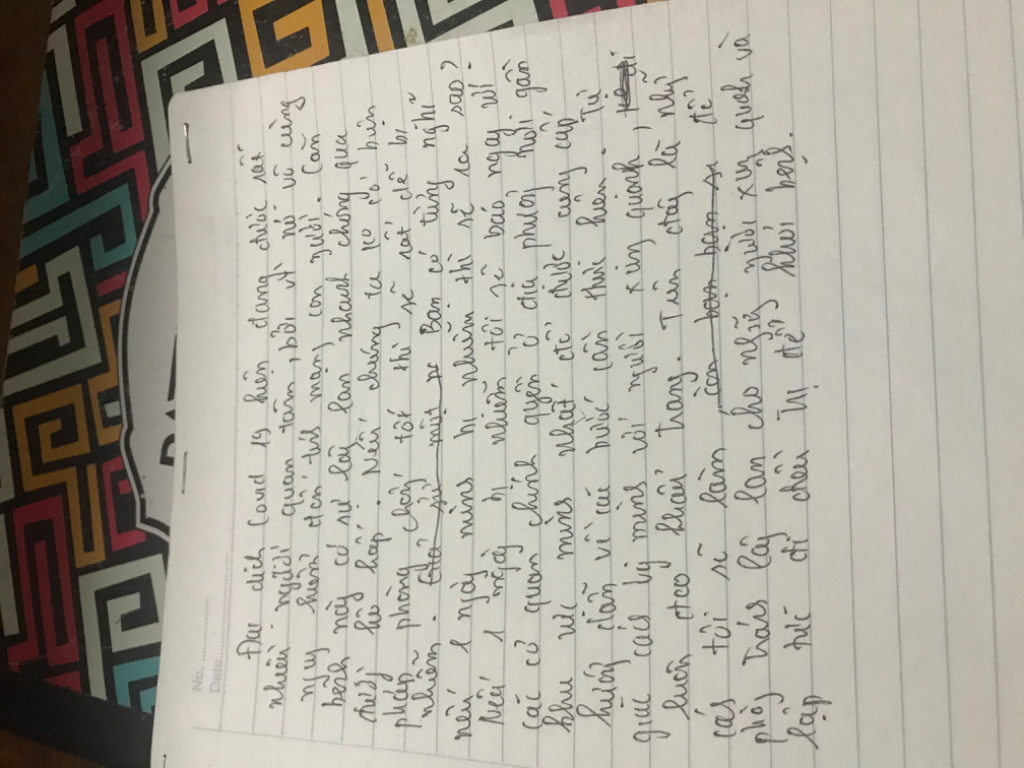 No. ............
Date. ............
Đại dịch Covid 19 hiện đang được rất
nhiều người quan tâm, bởi vì nó vô cùng
nguy hiểm đến tính mạng con người. Căn
bệnh này có sự lây lan nhanh chóng qua
đường hô hấp. Nếu chúng ta ko có biện
pháp phòng chống tốt thì sẽ rất dễ bị
nhiễm. Bạn có từng nghĩ
nếu 1 ngày mình bị nhiễm thì sẽ ra sao?
Nếu 1 ngày bị nhiễm tôi sẽ báo ngay với
các cơ quan chính quyền ở địa phương nơi gần
khu vực mình nhất để được cung cấp,
hướng dẫn về các bước cần thực hiện. Tự
giác cách ly mình với người xung quanh,
luôn đeo khẩu trang. Trên đây là những
cách tôi sẽ làm để
phòng tránh lây lan cho những người xung quanh và
lập tức đi điều trị để khỏi bệnh.